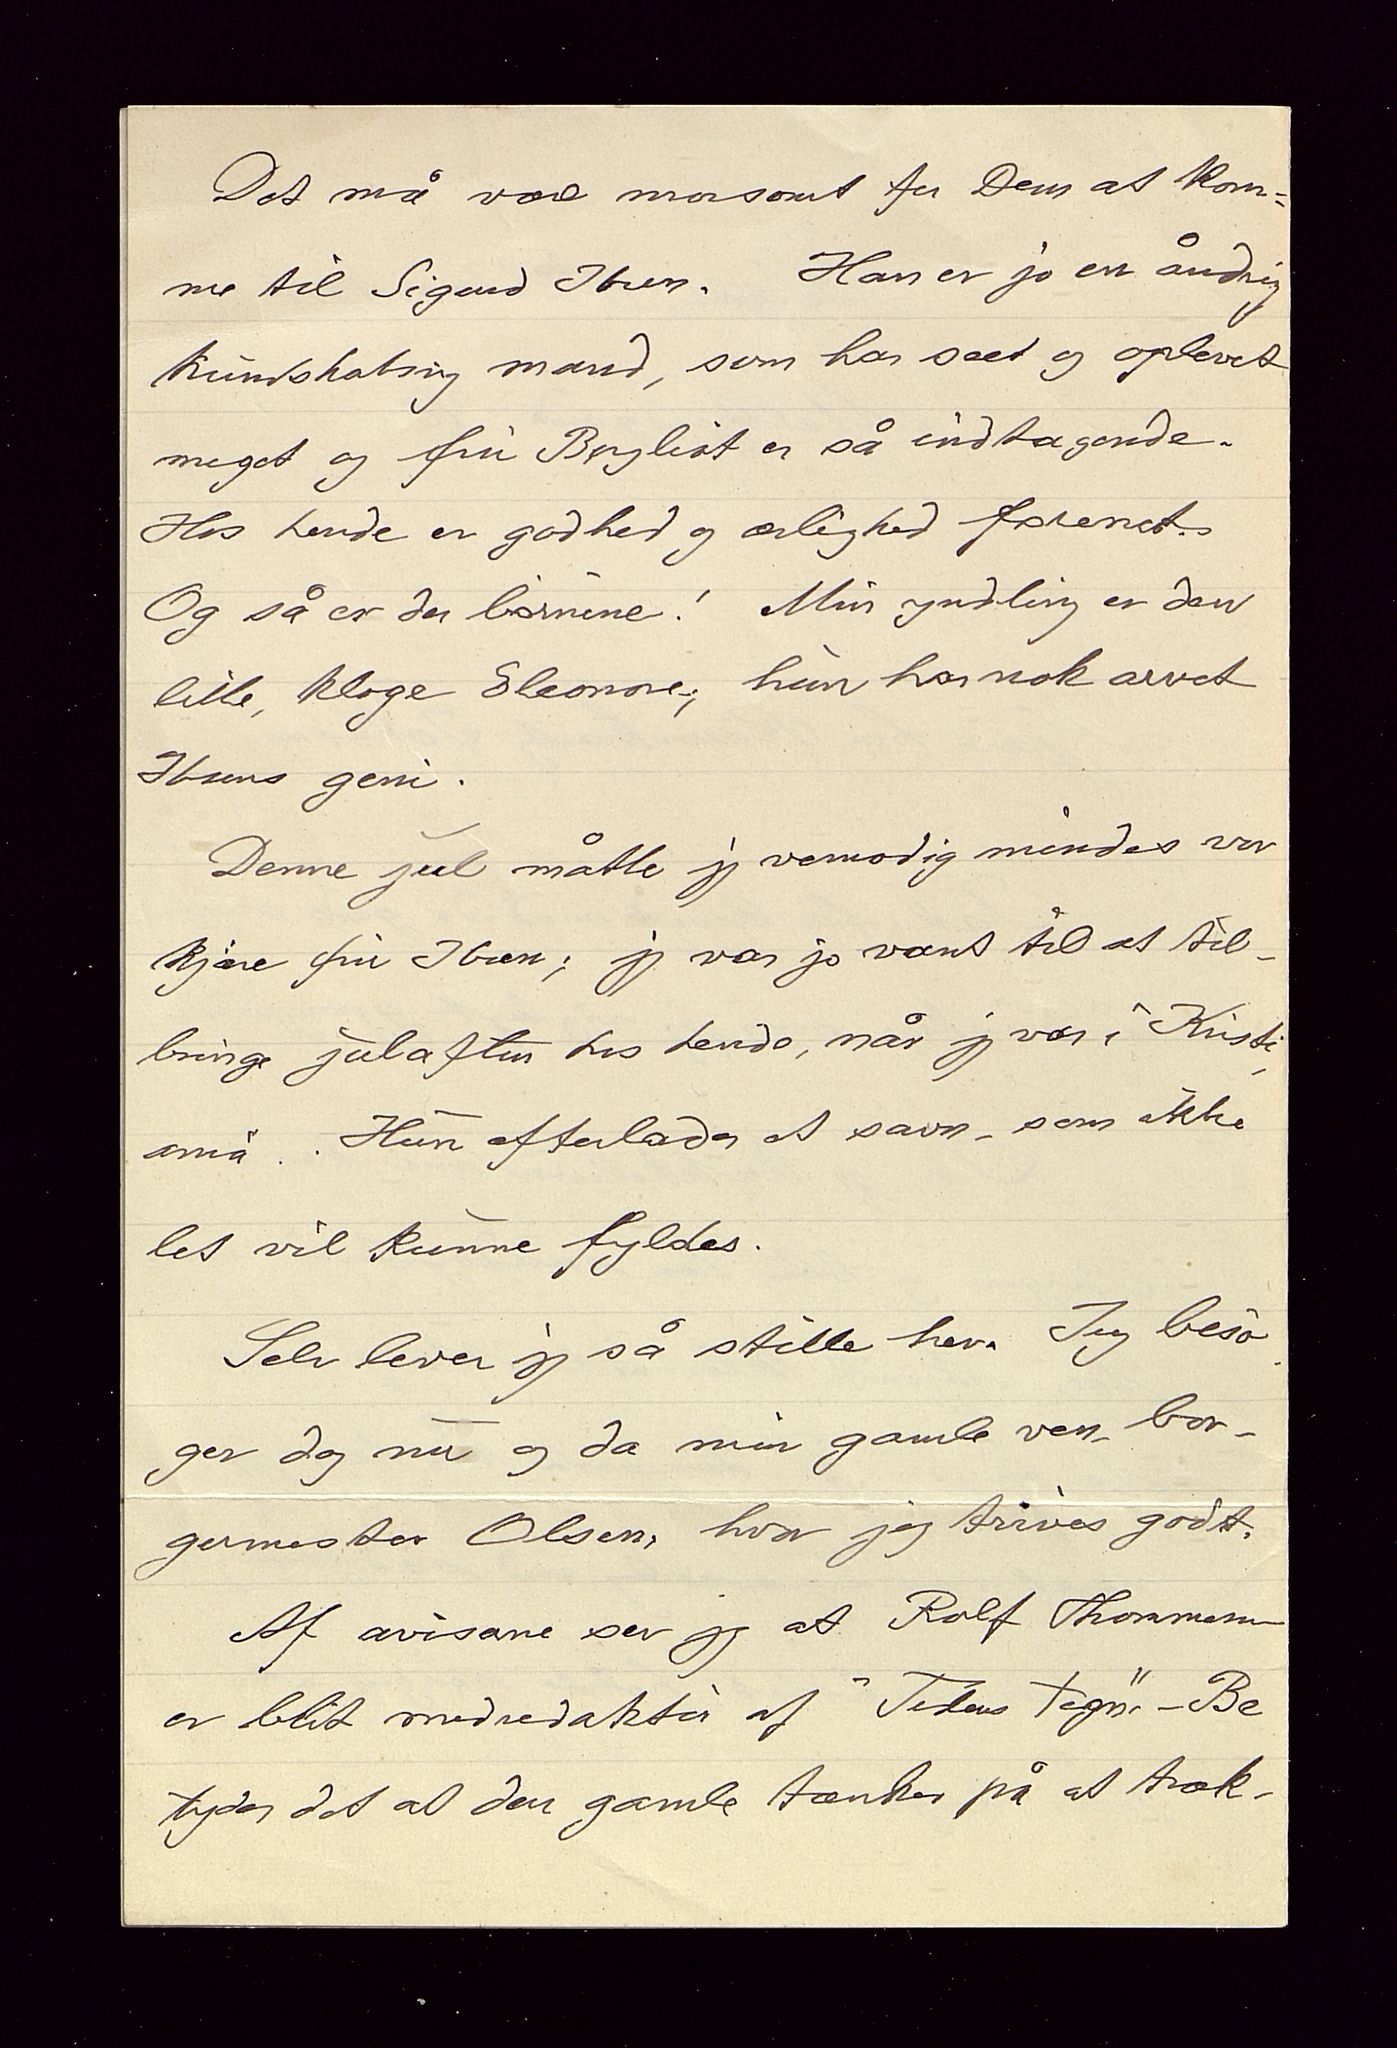 Det må være morsomt for Dem at kom-
me til Sigurd Ibsen. Han er jo en åndrig
kundskabsrig mand, som har seet og oplevet
meget og fru Bergliot er så indtagende.
Hos hende er godhed og ærlighed forenet.
Og så er der børnene! Min yndling er den
lille, kloge Eleonore; hun har nok arvet
Ibsens geni.
Denne jul måtte jeg vemodig mindes vor
kjære fru Ibsen; jeg var jo vant til at til-
bringe julaften hos hende, når jeg var i Kristi-
ania. Hun efterlader et savn, som ikke
let vil kunne fyldes.
Selv lever jeg så stille her. Jeg besø-
ger dog nu og da min gamle ven, bor-
germester Olsen, hvor jeg trives godt.
Af aviserne ser jeg at Rolf Thommesen
er blit medredaktør af "Tidens tegn". - Be
tyder det at den gamle tænker på at træk-